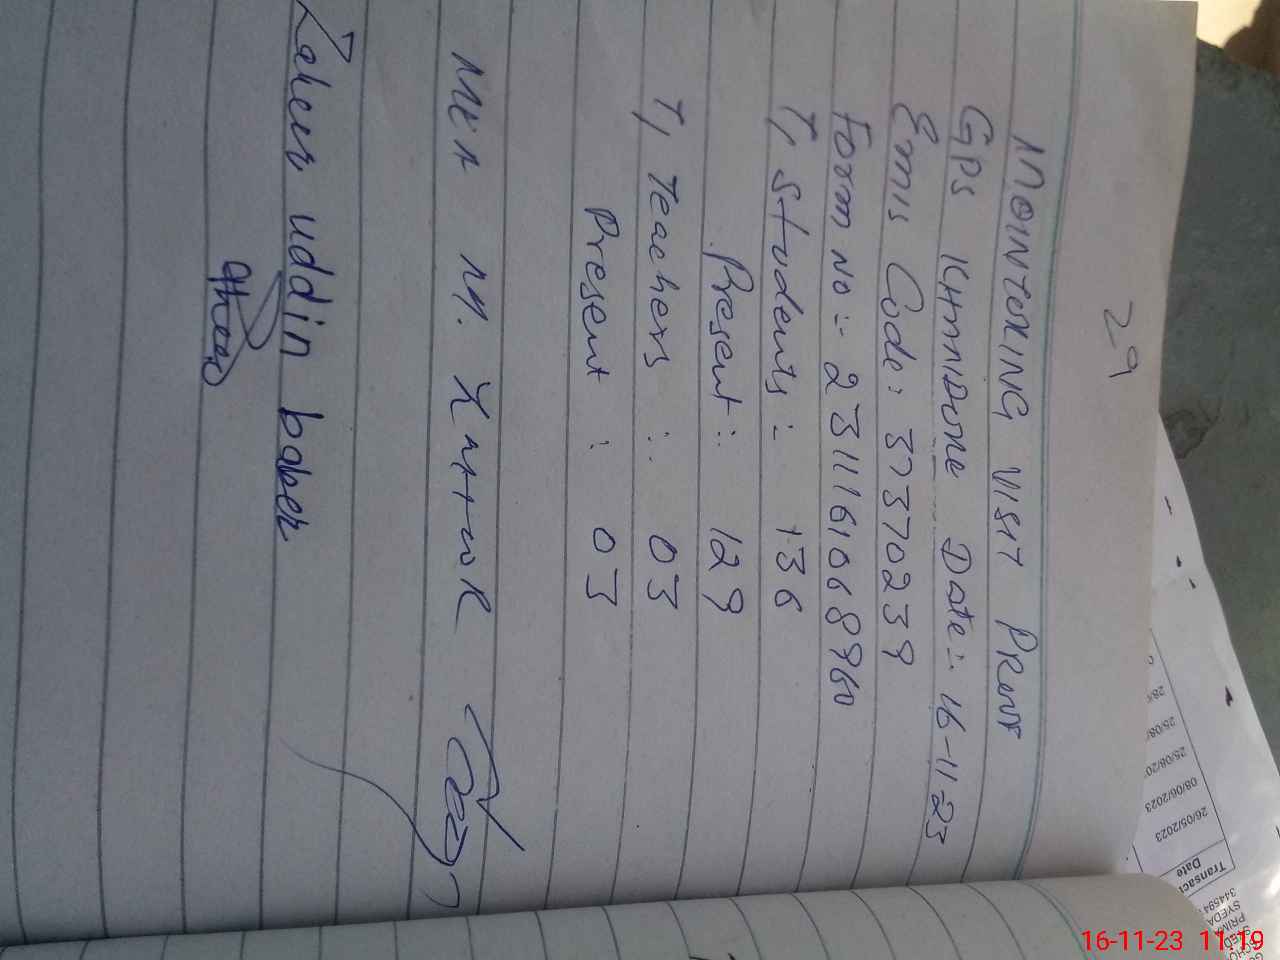 29
MOINTERING VISIT PROOF
GPS Date:- 16-11-23
Emis Code: 37370239
Form no:- 23111610689
T, Students:- 136
Present:- 129
T, Teachers:- 03
Present: 03
MEA M.
Zaheer uddin baber
26/05/2023
08/06/2023
25/08/20
25/08/
28/
Transact
Date
344594
SYEDA
PRIMA
16-11-23 11:19